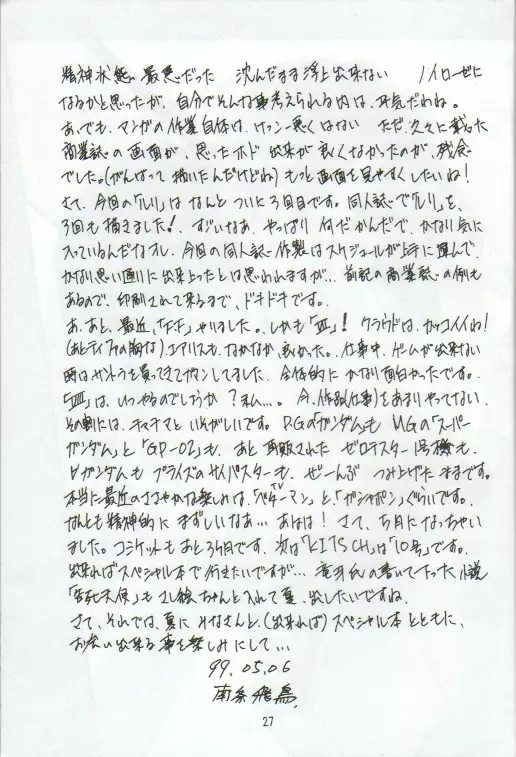 精神状態 最悪だった 沈んだまま浮上出来ない ノイローゼに
なるかと思ったが、自分でそんな事考えられる内は、平気だわね。
あ、でも、マンガの作業自体は、けっこー悪くはない ただ、久々に載った
商業誌の画面が、思ったホド 出来が良くなかったのが、残念
でした。(がんばって 描いたんだけどね) もっと画面を見やすくしたいね!
さて、今回の「ルリ」は なんと ついに3回目です。同人誌で「ルリ」を、
3回も描きました! すごいなあ、やっぱり 何だかんだで、かなり気に
入っているんだなオレ、今回の同人誌作製はスケジュールが上手に運んで、
かなり思い通りに出来上ったとは思われますが… 前記の商業誌の例も
あるので、印刷されて来るまで、ドキドキです。
あ、あと、最近、「F.F」やりました。しかも「Ⅶ」! クラウドは、カッコイイわ!
(あとティファの胸な) エアリスも、なかなか、良かった。仕事中、ゲームが出来ない
時はサントラを買ってきてガマンしてました。全体的に かなり面白かったです。
「Ⅷ」は、いつやるのでしょうか?私…。今、作品(仕事)をあまりやってない、
その割には、チャチャマと いそがしいです。P.Gの「ガンダム」も MGの「スーパー
ガンダム」と「GP-02」も、あと 再販された ゼロテスター1号機も、
Vガンダムも プライズのサイバスターも、ぜーんぶ つみ上げたままです。
本当に最近のささやかな楽しみは、TV「ベターマン」と、「ガシャポン」ぐらいです。
なんとも精神的に まずしいなあ… あはは! さて、5月になっちゃい
ました。コミケットもあと3ヶ月です。次は「KITSCH」は「10号」です。
出来ればスペシャル本で行きたいですが… 竜牙氏の書いて下さった小説
「告死天使」も さし絵ちゃんと入れて夏、出したいですね。
さて、それでは、夏に みなさんと、(出来れば) スペシャル本 とともに、
お会い出来る事を楽しみにして…
99.05.06
南条飛鳥
27